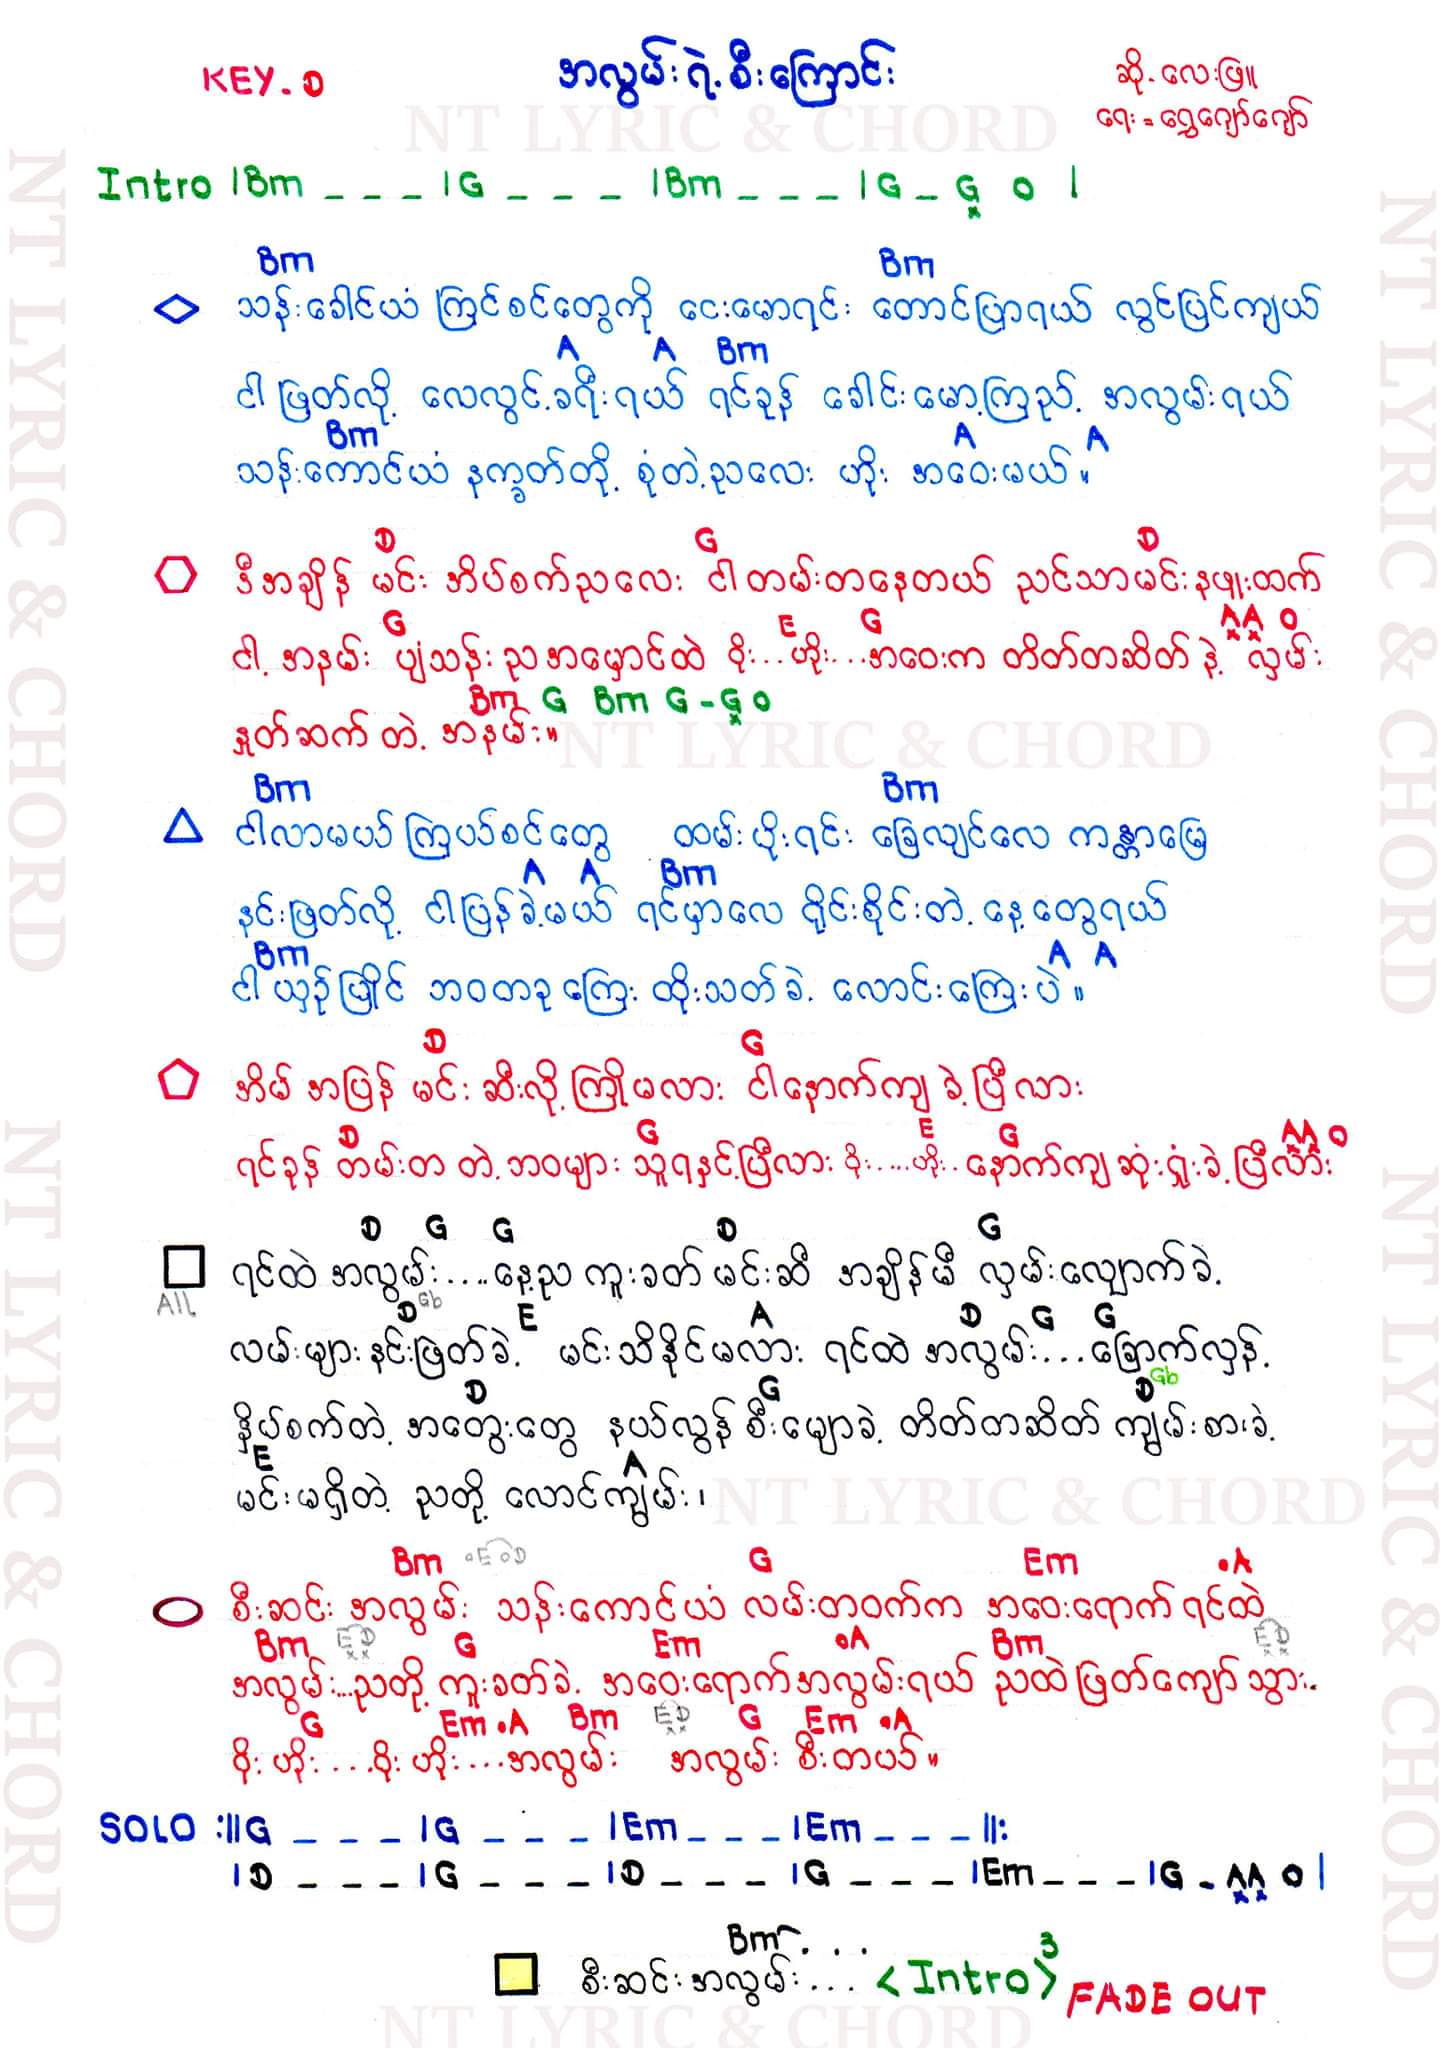 KEY. D
အလွမ်းရဲ့စီးကြောင်း
ဆို - လေးဖြူ။
ရေး = ရွှေဂျော်ဂျော်
NT LYRIC & CHORD
Intro |Bm _ _ _ |G _ _ _ |Bm _ _ _ |G _ G O |
Bm Bm
သန်းခေါင်ယံ ကြင်စင်တွေကို ငေးမောရင်း တောင်ပြာရယ် လွင်ပြင်ကျယ်
A A Bm
ငါ ဖြတ်လို့ လေလွင့်ခရီးရယ် ရင်ခုန် ခေါင်းမော့ကြည့် အလွမ်းရယ်
Bm A A
သန်းကောင်ယံ နက္ခတ်တို့ စုံတဲ့ညလေး ဟိုး အဝေးမယ်။
D G D
ဒီအချိန် မင်း အိပ်စက်ညလေး ငါတမ်းတနေတယ် ညင်သာမင်းနဖူးထက်
G E G A A O
ငါ့ အနမ်း ပျံသန်း ညအမှောင်ထဲ ဝိုး..ဟိုး...အဝေးက တိတ်တဆိတ် နဲ့ လှမ်း
Bm G Bm G - G O
နှုတ်ဆက် တဲ့ အနမ်း။
NT LYRIC & CHORD
Bm Bm
ငါလာမယ် ကြယ်စင်တွေ ထမ်းပိုးရင်း ခြေလျင်လေ ကန္တာမြေ
A A Bm
နင်းဖြတ်လို့ ငါပြန်ခဲ့မယ် ရင်မှာလေ ရိုင်းစိုင်းတဲ့ နေ့တွေရယ်
Bm A A
ငါယှဉ်ပြိုင် ဘဝတခုကြေး ထိုးသတ်ခဲ့ လောင်းကြေးပဲ။
D G
အိမ်အပြန် မင်းဆီးလို့ကြိုမလား ငါနောက်ကျခဲ့ပြီလား
D G E G A A O
ရင်ခုန် တမ်းတ တဲ့ဘဝများ သူရနှင့်ပြီလား ဝိုး....ဟိုး..နောက်ကျဆုံးရှုံးခဲ့ပြီလား
D G G D G
ရင်ထဲအလွမ်း....နေ့ည ကူးခတ်မင်းဆီ အချိန်မီ လှမ်းလျှောက်ခဲ့
All
D Gb E A D G G
လမ်းများနင်းဖြတ်ခဲ့ မင်းသိနိုင်မလား ရင်ထဲအလွမ်း...ခြောက်လှန့်
D G D Gb
နှိပ်စက်တဲ့ အတွေးတွေ နယ်လွန်စီးမျောခဲ့ တိတ်တဆိတ် ကျွမ်းစားခဲ့
E A
မင်းမရှိတဲ့ ညတို့ လောင်ကျွမ်း၊
NT LYRIC & CHORD
Bm .E D G Em .A
စီးဆင်း အလွမ်း သန်းကောင်ယံ လမ်းတဝက်က အဝေးရောက်ရင်ထဲ
Bm E D G Em .A Bm E D
အလွမ်း...ညတို့ ကူးခတ်ခဲ့ အဝေးရောက်အလွမ်းရယ် ညထဲဖြတ်ကျော်သွား..
G Em .A Bm E D G Em .A
ဝိုး ဟိုး...ဝိုး ဟိုး...အလွမ်း အလွမ်း စီးတယ်။
SOLO :||G _ _ _ |G _ _ _ |Em _ _ _ |Em _ _ _ ||:
|D _ _ _ |G _ _ _ |D _ _ _ |G _ _ _ |Em _ _ _ |G - A A O |
Bm...
စီးဆင်းအလွမ်း... <Intro>3 FADE OUT
NT LYRIC & CHORD
NT LYRIC & CHORD
NT LYRIC & CHORD
NT LYRIC & CHORD
NT LYRIC & CHORD